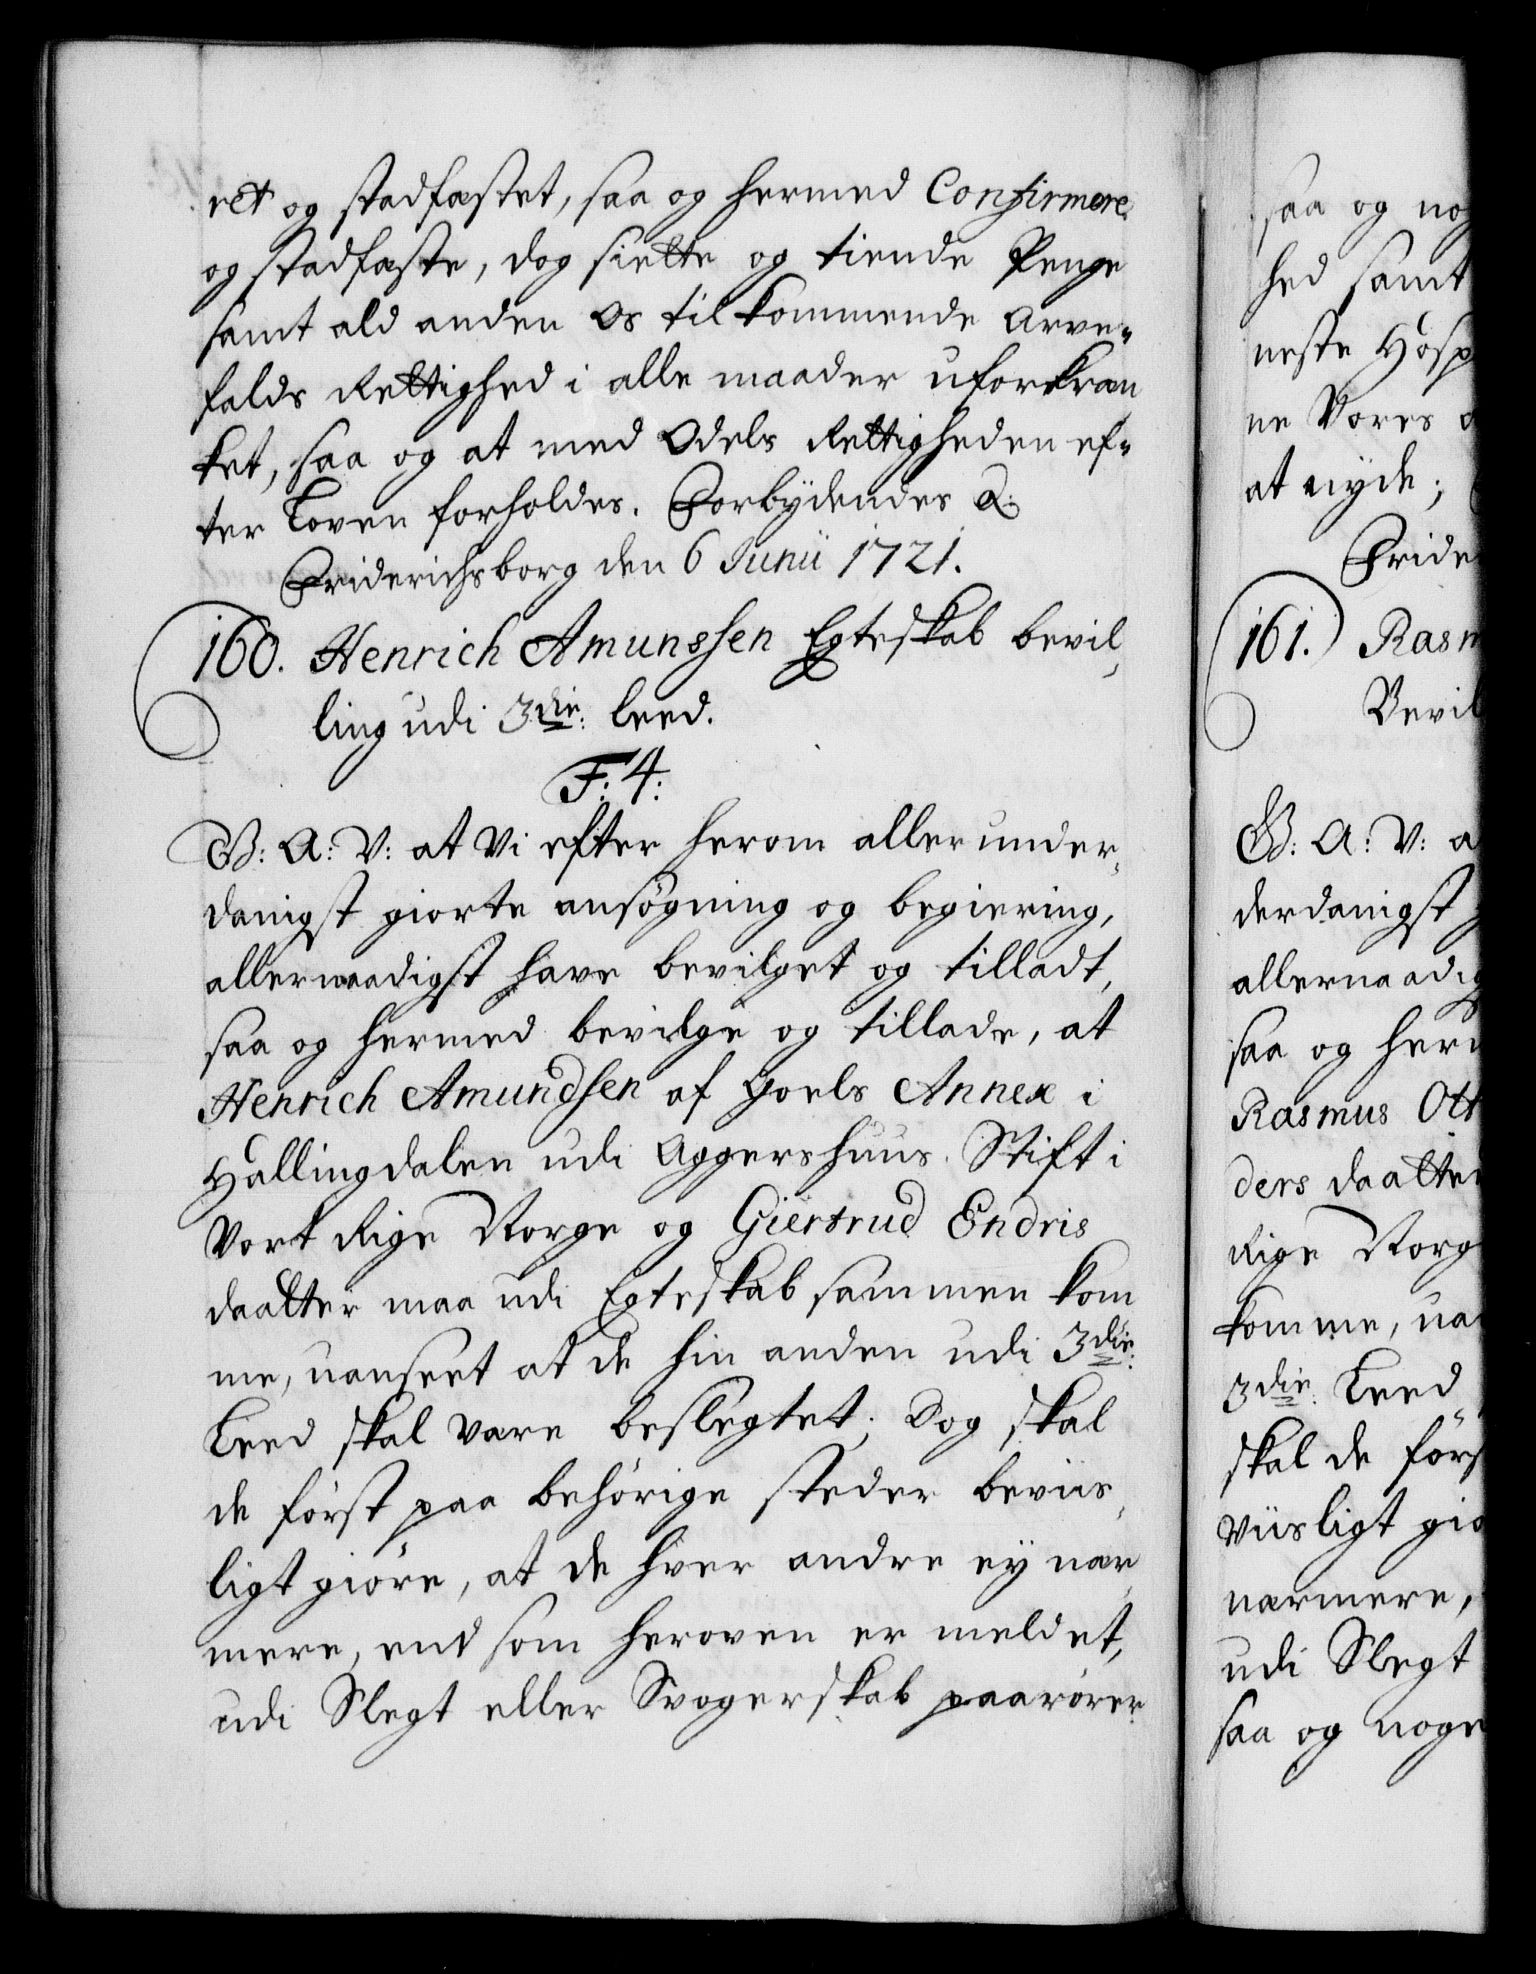 ret og stadfæstet, saa og hermed Confirmere
og stadfæste, dog siette og tiende Penge
samt ald anden Os tilkommende Arve-
falds Rettighed i alle maader uforkræn
ket, saa og at med Odels Rettigheden ef-
ter Loven forholdes. Forbydendes &:
Friderichsborg den 6 Junii 1721.
160. Henrich Amunssen Egteskab bevil
ling udi 3die: leed.
F: 4:
G: A: V: at Vi efter herom allerunder
danigst giorte ansøgning og begiering,
allernaadigst have bevilget og tilladt,
saa og hermed bevilge og tillade, at
Henrich Amundsen af Goels Annex i
Hallingdalen udi Aggershuus Stift i
Vort Rige Norge og Giertrud Endris
daatter maa udi Egteskab sammen kom
me, uanseet at de hin anden udi 3die:
Leed skal være beslegtet; Dog skal
de først paa behørige steder beviis
ligt giøre, at de hver andre ey nær
mere, end som heroven er meldet,
udi Slegt eller Svogerskab paarører
saa og nog
hed samt
neste Hosp
ne Vores
at nyde;
Frider
161. Rasm
Bevil
G: A: V: a
derdanigst
allernaadig
saa og herm
Rasmus Ott
ders daatter
Rige Norg
komme, ua
3die: Leed
skal de førs
viisligt gio
nærmere,
udi Slegt
saa og noge